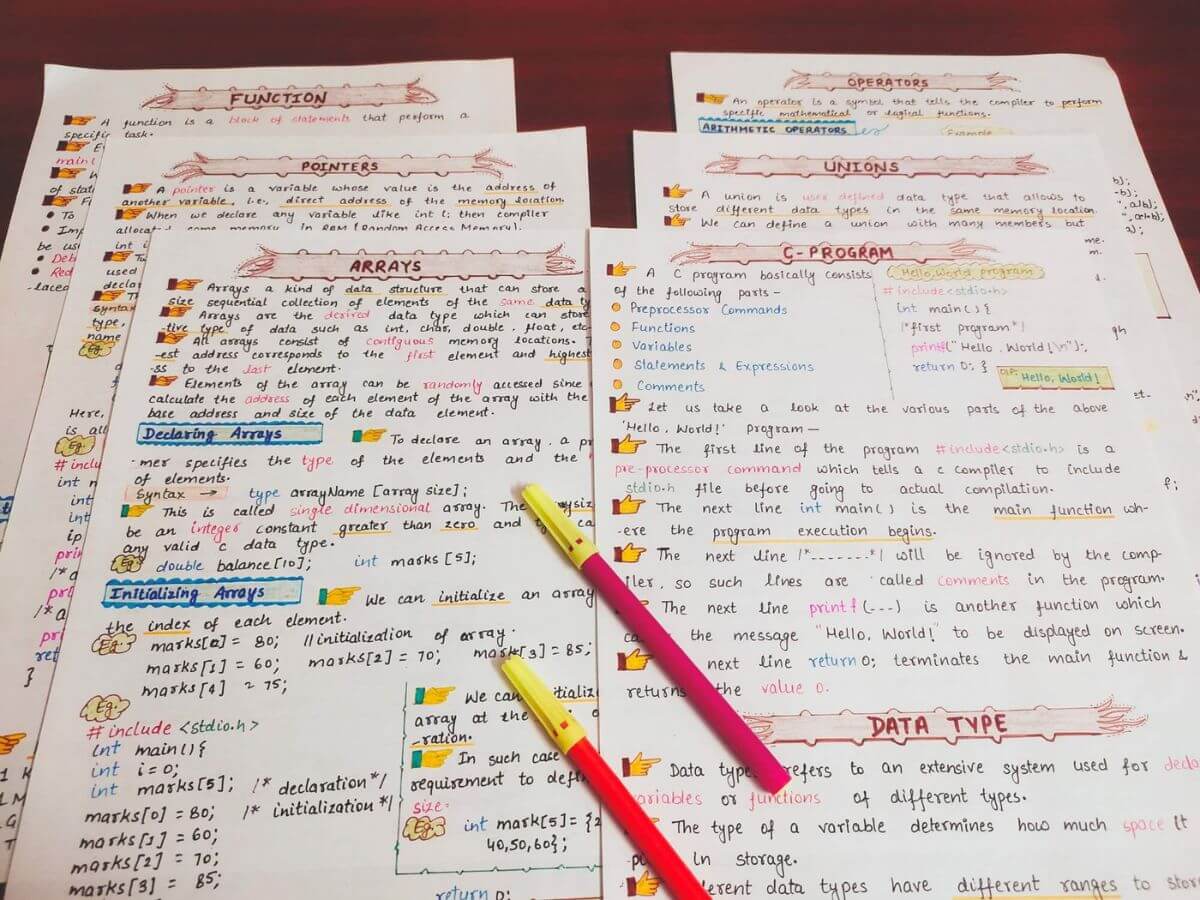 FUNCTION
A function is a block of statements that perform a
specific task.
main(
of stat
To
Imp
be us
Deb
Red
-laced
POINTERS
A pointer is a variable whose value is the address of
another variable, i.e., direct address of the memory location.
When we declare any variable like int i; then compiler
used
decla
Syntax
type,
name
Eg.
Here,
is all
Eg.
# inclu
int
int
ip
prin
/* a
ret
}
ARRAYS
Arrays a kind of data structure that can store a
size sequential collection of elements of the same data ty
Arrays are the desired data type which can store
-tive type of data such as int, char, double, float, etc
All arrays consist of contiguous memory locations.
-est address corresponds to the first element and highest
-ss to the last element.
Elements of the array can be randomly accessed since
calculate the address of each element of the array with the
base address and size of the data element.
Declaring Arrays
To declare an array, a pr
-mer specifies the type of the elements and the
of elements.
Syntax → type arrayName [array size];
This is called single dimensional array. The
be an integer constant greater than zero and
any valid c data type.
Eg. double balance[10]; int marks [5];
Initializing Arrays
We can initialize an array
the index of each element.
Eg. marks[0] = 80; //initialization of array.
marks[1] = 60; marks[2] = 70; mark[3] = 85;
marks[4] = 75;
Eg.
# include <stdio.h>
int main(){
int i=0;
int marks[5]; /* declaration*/
marks[0] = 80; /* initialization */
marks[1] = 60;
marks[2] = 70;
marks[3] = 85;
We can
array at the
-ration.
In such case
requirement to defi
size.
Eg. int mark[5] = {2
40,50,60};
return 0;
OPERATORS
An operator is a symbol that tells the compiler to perform
specific mathematical or logical functions.
ARITHMETIC OPERATORS
Example
UNIONS
A union is user defined data type that allows to
store different data types in the same memory location.
We can define a union with many members but
C-PROGRAM
A C program basically consists
of the following parts -
Preprocessor Commands
Functions
Variables
Statements & Expressions
Comments
Hello, World program
# include<stdio.h>
int main(){
/*first program*/
printf("Hello, World!\n");
return 0; }
O/P:- Hello, World!
Let us take a look at the various parts of the above
'Hello, World!' program —
The first line of the program #include<stdio.h> is a
pre-processor command which tells a c compiler to include
stdio.h file before going to actual compilation.
The next line int main() is the main function wh-
-ere the program execution begins.
The next line /*-------*/ will be ignored by the comp-
iler, so such lines are called comments in the program.
The next line printf(---) is another function which
the message "Hello, World!" to be displayed on screen.
next line return 0; terminates the main function &
returns the value 0.
DATA TYPE
Data type refers to an extensive system used for decla
variables or functions of different types.
The type of a variable determines how much space it
in storage.
data types have different ranges to stor